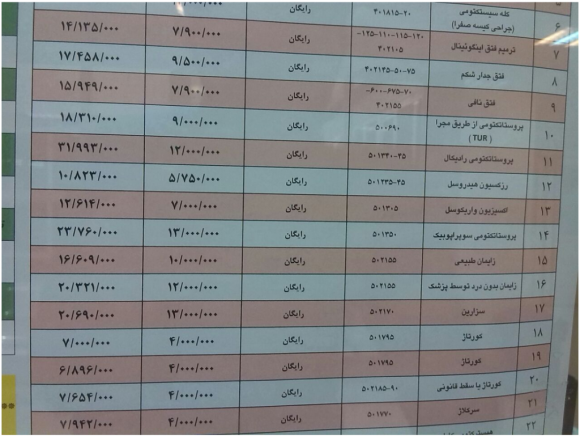 ۶ کله سیستکتومی (جراحی کیسه صفرا) ۴۰۱۸۱۵-۲۰ رایگان
۷ ترمیم فتق اینگوئینال ۱۲۵-۱۱۰-۱۱۵-۱۲۰- ۴۰۲۱۰۵ رایگان ۷/۹۰۰/۰۰۰ ۱۴/۱۳۵/۰۰۰
۸ فتق جدار شکم ۴۰۲۱۴۵-۵۰-۷۵ رایگان ۹/۵۰۰/۰۰۰ ۱۷/۴۵۸/۰۰۰
۹ فتق نافی ۶۰۰-۶۷۵-۷۰- ۴۰۲۱۵۵ رایگان ۷/۹۰۰/۰۰۰ ۱۵/۹۴۹/۰۰۰
۱۰ پروستاتکتومی از طریق مجرا (TUR) ۵۰۰۶۹۰ رایگان ۹/۰۰۰/۰۰۰ ۱۸/۳۱۰/۰۰۰
۱۱ پروستاتکتومی رادیکال ۵۰۱۳۴۰-۳۵ رایگان ۱۲/۰۰۰/۰۰۰ ۳۱/۹۹۳/۰۰۰
۱۲ رزکسیون هیدروسل ۵۰۱۲۳۵-۴۵ رایگان ۵/۷۵۰/۰۰۰ ۱۰/۸۲۳/۰۰۰
۱۳ اکسیزیون واریکوسل ۵۰۱۳۰۵ رایگان ۷/۰۰۰/۰۰۰ ۱۲/۶۱۴/۰۰۰
۱۴ پروستاتکتومی سوپراپوبیک ۵۰۱۳۵۰ رایگان ۱۳/۰۰۰/۰۰۰ ۲۳/۷۶۰/۰۰۰
۱۵ زایمان طبیعی ۵۰۲۱۵۵ رایگان ۱۰/۰۰۰/۰۰۰ ۱۶/۶۰۹/۰۰۰
۱۶ زایمان بدون درد توسط پزشک ۵۰۲۱۵۵ رایگان ۱۲/۰۰۰/۰۰۰ ۲۰/۳۲۱/۰۰۰
۱۷ سزارین ۵۰۲۱۷۰ رایگان ۱۳/۰۰۰/۰۰۰ ۲۰/۶۹۰/۰۰۰
۱۸ کورتاژ ۵۰۱۷۹۵ رایگان ۴/۰۰۰/۰۰۰ ۷/۰۰۰/۰۰۰
۱۹ کورتاژ ۵۰۱۷۹۵ رایگان ۴/۰۰۰/۰۰۰ ۶/۸۹۶/۰۰۰
۲۰ کورتاژ یا سقط قانونی ۵۰۲۱۸۵-۹۰ رایگان ۴/۰۰۰/۰۰۰ ۷/۶۵۴/۰۰۰
۲۱ سرکلاژ ۵۰۱۷۷۰ رایگان ۴/۰۰۰/۰۰۰ ۷/۹۴۲/۰۰۰
۲۲